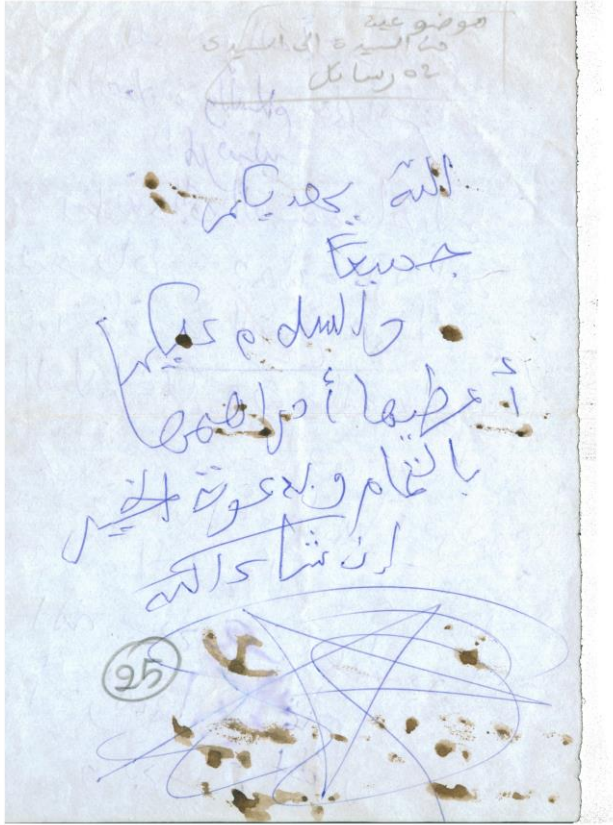 موضوعية
من السيدة الى السيدى
52 رسائل
الله يهديكم
جميعًا
والسلام عليكم
أعطيها أمرا
بالتمام وبدعوة الخير
إن شاء الله
25